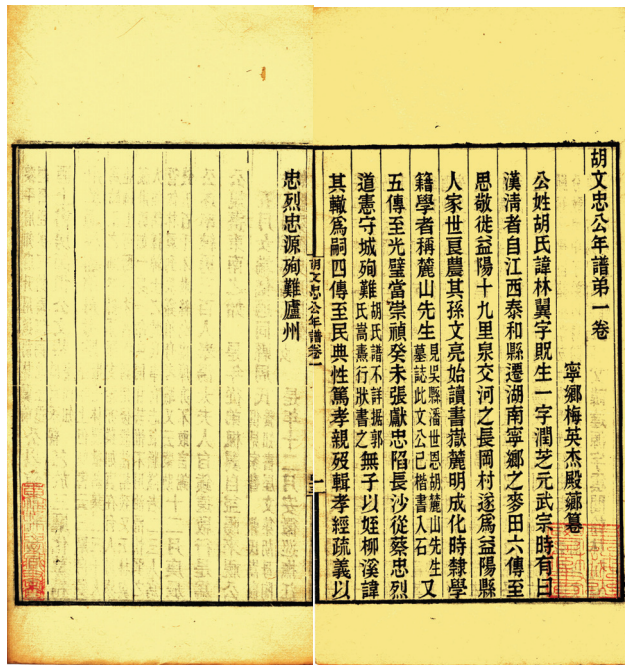 胡文忠公年譜弟一卷
寧鄉梅英杰殿薌纂
公姓胡氏諱林翼字貺生一字潤芝元武宗時有曰
漢清者自江西泰和縣遷湖南寧鄉之麥田六傳至
思敬徙益陽十九里泉交河之長岡村遂爲益陽縣
人家世良農其孫文亮始讀書嶽麓明成化時隸學
籍學者稱麓山先生見吳縣潘世恩胡麓山先生墓誌此文公已楷書入石又
五傳至光璧當崇禎癸未張獻忠陷長沙從蔡忠烈
道憲守城殉難胡氏譜不詳据郭氏嵩燾行狀書之無子以姪柳溪諱
其轍爲嗣四傳至民典性篤孝親歿輯孝經疏義以
胡文忠公年譜卷一
一
忠烈忠源殉難廬州